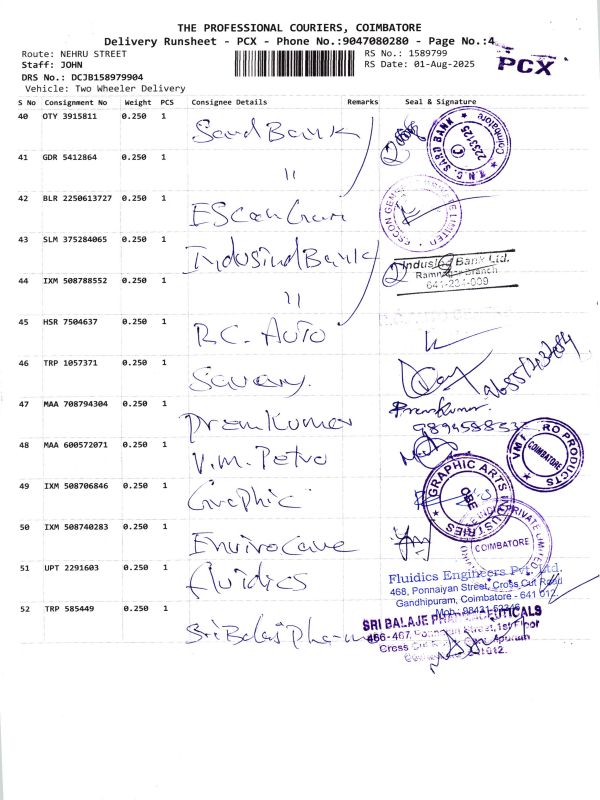 THE PROFESSIONAL COURIERS, COIMBATORE
Delivery Runsheet - PCX - Phone No.:9047080280 - Page No.:4
Route: NEHRU STREET RS No.: 1589799
Staff: JOHN RS Date: 01-Aug-2025
PCX
DRS No.: DCJB158979904
Vehicle: Two Wheeler Delivery
S No Consignment No Weight PCS Consignee Details Remarks Seal & Signature
40 OTY 3915811 0.250 1 Sard Bank
T.N.C. SARD BANK Coimbatore 2233125
41 GDR 5412864 0.250 1 "
42 BLR 2250613727 0.250 1 EScon Gem
43 SLM 375284065 0.250 1 Indusind Bank
IndusInd Bank Ltd.
Ramnagar Branch
641-231-009
44 IXM 508788552 0.250 1 "
45 HSR 7504637 0.250 1 R.C. Auto
46 TRP 1057371 0.250 1
47 MAA 708794304 0.250 1 PremKumar PremKumar
48 MAA 600572071 0.250 1 V.M. Petro
PRO PRODUCTS COIMBATORE
49 IXM 508706846 0.250 1 Graphic
GRAPHIC ARTS INDUSTRIES CBE
50 IXM 508740283 0.250 1 Envirocare
PRIVATE LIMITED COIMBATORE
51 UPT 2291603 0.250 1 fluidics
Fluidics Engineers Pvt. Ltd.
468, Ponnaiyan Street, Cross Cut Road
Gandhipuram, Coimbatore - 641 012.
52 TRP 585449 0.250 1 Sri Balaji Pharma
SRI BALAJE PHARMACEUTICALS
466-467, Ponnaiyan Street, 1st Floor
Cross Cut